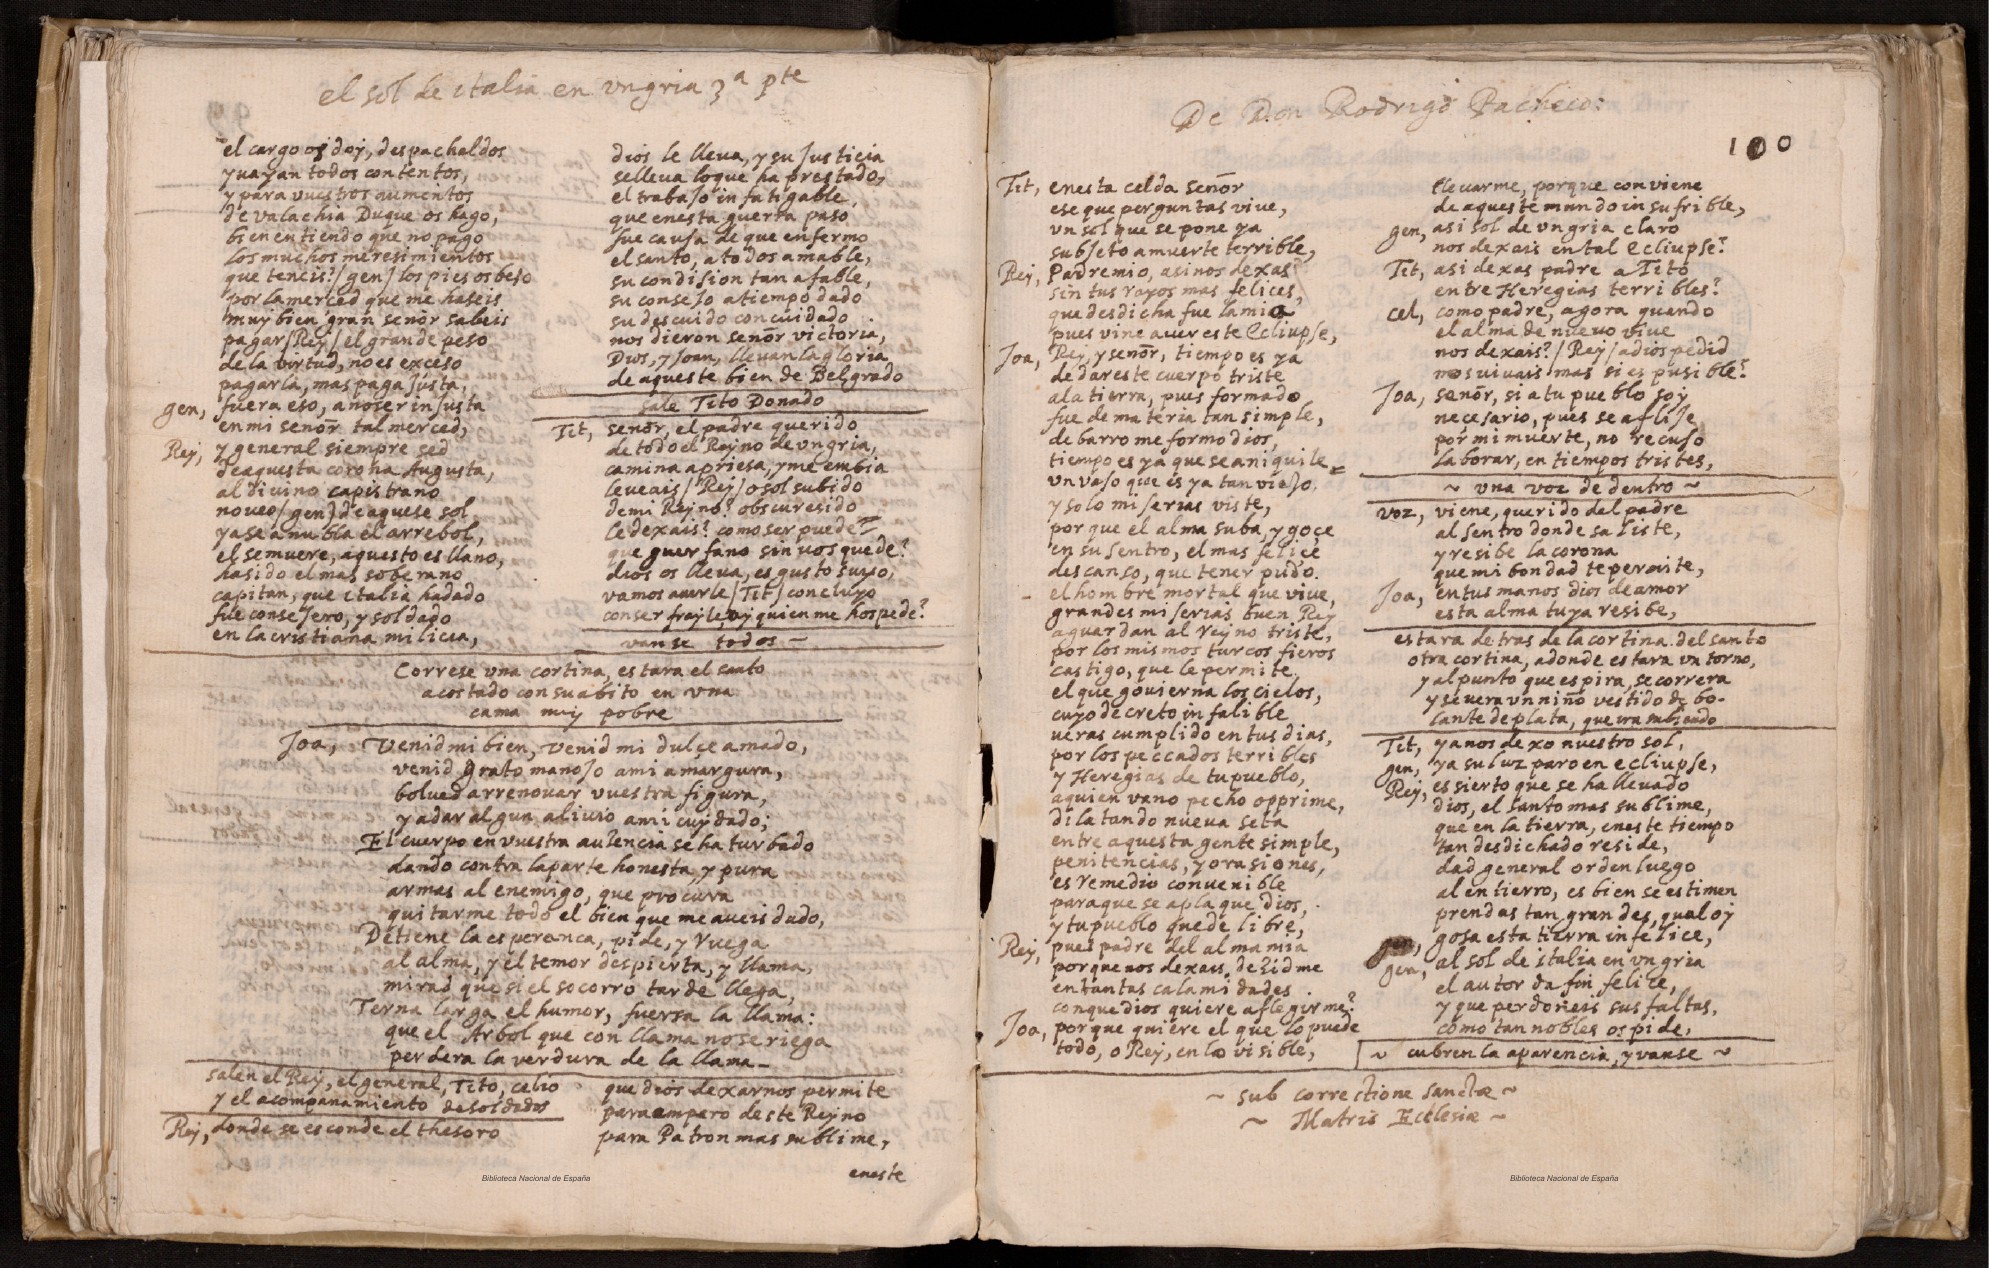 el sol de italia en vngria 3ª pte
el cargo os doy, despacheldos
y uayan todos contentos,
y para vuestros aumentos
de valachia Duque os hago,
bien entiendo que no pago
los muchos meresimientos
que teneis?/gen/ los pies os beso
por la merced que me haseis
muy bien gran señor sabeis
pagar/Rey/ el grande peso
de la virtud, no es exceso
pagarla, mas paga justa,
gen, fuera eso, a no ser injusta
en mi señor tal merced,
Rey, y general siempre sed
de aquesta corona Augusta,
al divino capistrano
no ueo/gen/ de aquese sol
ya se anubla el arrebol,
el se muere, aquesto es llano,
ha sido el mas soberano
capitan, que italia ha dado
fue consejero, y soldado
en la cristiana milicia,
dios le lleua, y su justicia
se lleua lo que ha prestado,
el trabajo infatigable,
que en esta guerra paso
fue causa de que enfermo
el santo, a todos amable,
su condision tan afable,
su consejo a tiempo dado
su descuido con cuidado
nos dieron señor victoria,
Dios, y Joan, lleuan la gloria
de aqueste bien de Belgrado
sale Tito Donado
Tit, señor, el padre querido
de todo el Reyno de vngria,
camina apriesa, y me embia
le ueais/Rey/ o sol subido
de mi Reyno? obscuresido
le dexais? como ser puede?
que guerfano sin uos quede?
dios os lleua, es gusto suyo,
vamos a uerle/Tit/ concluyo
con ser frayle, ay quien me hospede?
vanse todos
Correse vna cortina, estara el santo
acostado con su abito en vna
cama muy pobre
Joa, Venid mi bien, venid mi dulçe amado,
venid grato manojo a mi amargura,
bolued a rrenouar vuestra figura,
y a dar algun aliuio a mi cuydado;
El cuerpo en vuestra ausencia se ha turbado
dando contra la parte honesta, y pura
armas al enemigo, que procura
quitarme todo el bien que me aueis dado,
Detiene la esperanca, pide, y Ruega
al alma, y el temor despierta, y llama,
mirad que si el socorro tarde llega,
Terna larga el humor, fuersa la llama:
que el Arbol que con llama no se riega
perdera la verdura de la llama
salen el Rey, el general, Tito, celio
y el acompanamiento de soldados
Rey, donde se esconde el thesoro
que dios dexarnos permite
para amparo deste Reyno
para Patron mas sublime,
eneste
De Don Rodrigo Pacheco:
100
Tit, en esta celda señor
ese que perguntas viue,
vn sol que se pone ya
subjeto a muerte terrible,
Rey, Padre mio, asi nos dexas
sin tus rayos mas felices,
que desdicha fue la mia
pues vine a uer este Ecliupse,
Joa, Rey, y señor, tiempo es ya
de dar este cuerpo triste
a la tierra, pues formado
fue de materia tan simple,
de barro me formo dios,
tiempo es ya que se aniquile
vn vaso que es ya tan viejo
y solo miserias viste,
por que el alma suba, y goce
en su sentro, el mas felice
descanso, que tener pudo.
el hombre mortal que viue,
grandes miserias buen Rey
aguardan al reyno triste,
por los mismos turcos fieros
castigo, que le permite
el que gouierna los cielos,
cuyo decreto infalible
ueras cumplido en tus dias,
por los peccados terribles
y Heregias de tu pueblo,
a quien vano pecho opprime,
dilatando nueua seta
entre aquesta gente simple,
penitencias, y orasiones,
es remedio conuenible
para que se aplaque dios,
y tu pueblo quede libre,
Rey, pues padre del alma mia
porque nos dexais, dezidme
en tantas calamidades
con que dios quiere aflegirme?
Joa, porque quiere el que lo puede
todo, o Rey, en lo visible,
lleuarme, porque conviene
de aqueste mundo insufrible,
gen, asi sol de vngria claro
nos dexais en tal Ecliupse?
Tit, asi dexas padre a Tito
entre Heregias terribles?
cel, como padre, agora quando
el alma de nueuo viue
nos dexais?/Rey/ a dios pedid
nos uiuais mas si es pusible?
Joa, señor, si a tu pueblo soy
necesario, pues se aflije
por mi muerte, no recuso
laborar, en tiempos tristes,
~ vna voz de dentro ~
voz, viene, querido del padre
al sentro donde saliste,
y resibe la corona
que mi bondad te permite,
Joa, en tus manos dios de amor
esta alma tuya resibe,
estara detras de la cortina del santo
otra cortina, adonde estara vn torno,
y al punto que espira, se correra
y se uera vn niño vestido de bo-
lante de plata, que ira subiendo
Tit, ya nos dexo nuestro sol,
gen, ya su luz paro en ecliupse,
Rey, es sierto que se ha lleuado
dios, el santo mas sublime,
que en la tierra, en este tiempo
tan desdichado reside,
dad general orden luego
al entierro, es bien se estimen
prendas tan grandes, qual oy
gosa esta tierra infelice,
gen, al sol de italia en vngria
el autor da fin felice,
y que perdoneis sus faltas,
como tan nobles os pide,
~ cubren la aparencia, y vanse ~
~ sub correctione sanctæ ~
~ Matris Ecclesiæ ~
Biblioteca Nacional de España
Biblioteca Nacional de España